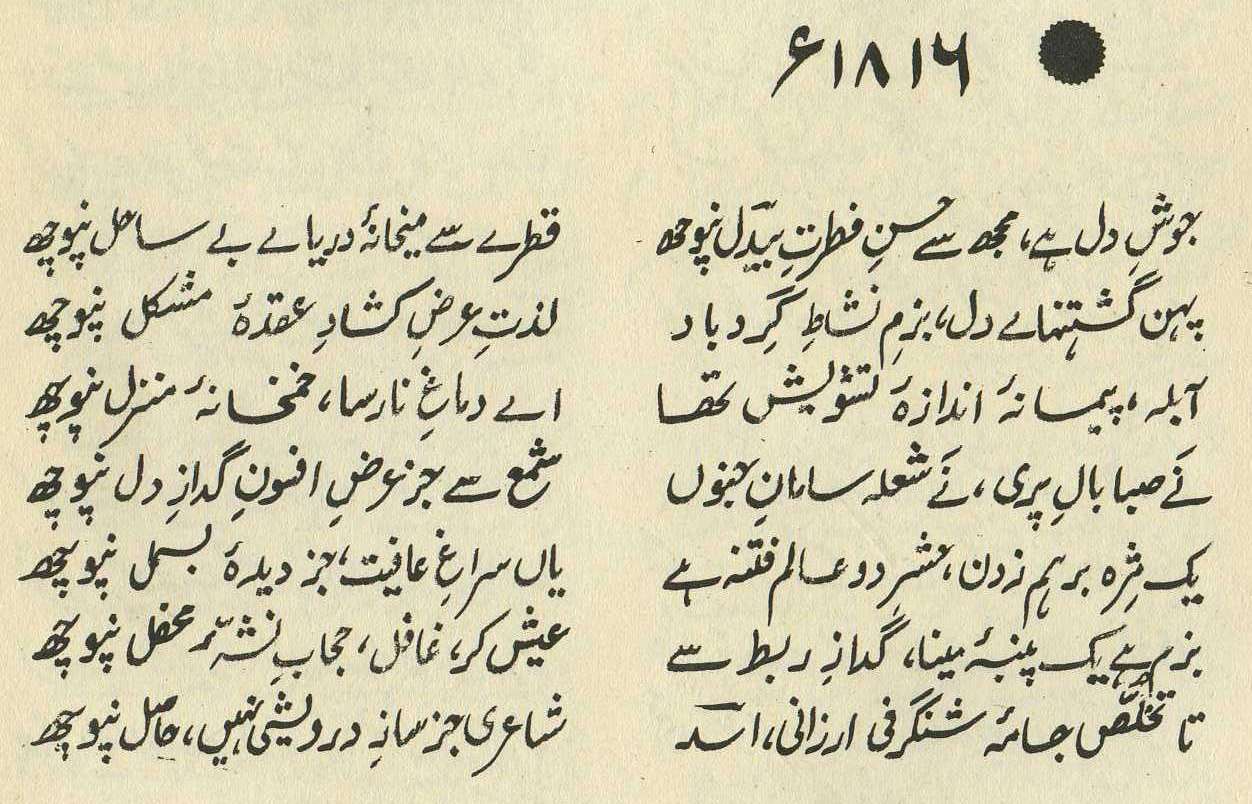 ۱۸۱۶ء
جوشِ دل ہے، مجھ سے حسنِ فطرتِ بیدل نپوچھ
قطرے سے میخانۂ دریاے بے ساحل نپوچھ
پہن گشتنہاے دل، بزمِ نشاطِ گِردباد
لذتِ عرضِ کشادِ عقدۂ مشکل نپوچھ
آبلہ، پیمانۂ اندازۂ تشویش تھا
اے دماغِ نارسا، خمخانۂ منزل نپوچھ
نَے صبا بالِ پری، نَے شعلہ سامانِ جنوں
شمع سے جز عرضِ افسونِ گدازِ دل نپوچھ
یک مژہ برہم زدن، حشرِ دو عالم فتنہ ہے
یاں سراغِ عافیت، جز دیدۂ بسمل نپوچھ
بزم ہے یک پنبۂ مینا، گدازِ ربط سے
عیش کر، غافل، حجابِ نشۂ محفل نپوچھ
تا تخلّص جامۂ شنگرفی ارزانی، اسد
شاعری جز سازِ درویشی نہیں، حاصل نپوچھ